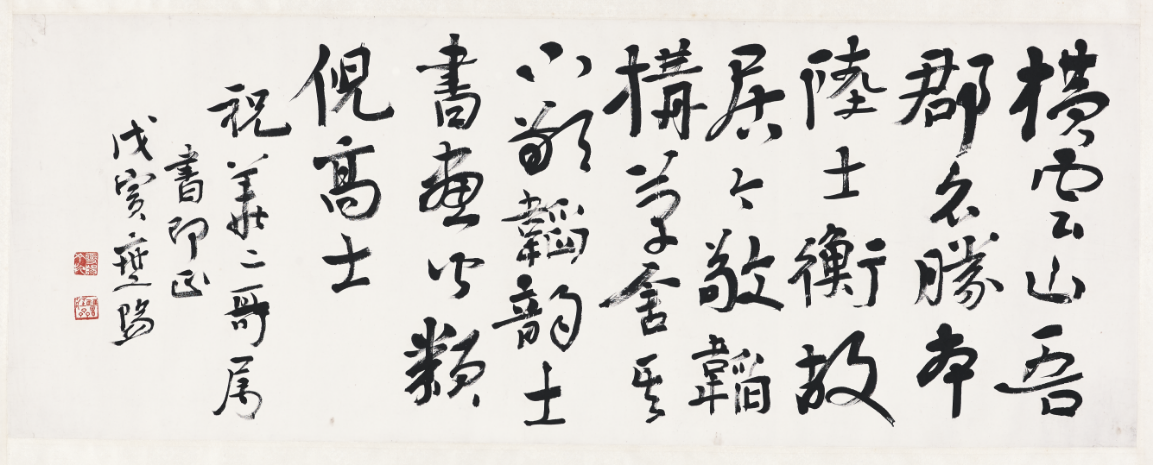 橫雲山吾
郡名勝本
陸士衡故
居今敬韜
構草舍其
下敬韜韵士
書畫皆類
倪高士
祝華二哥属
書即正
戊寅